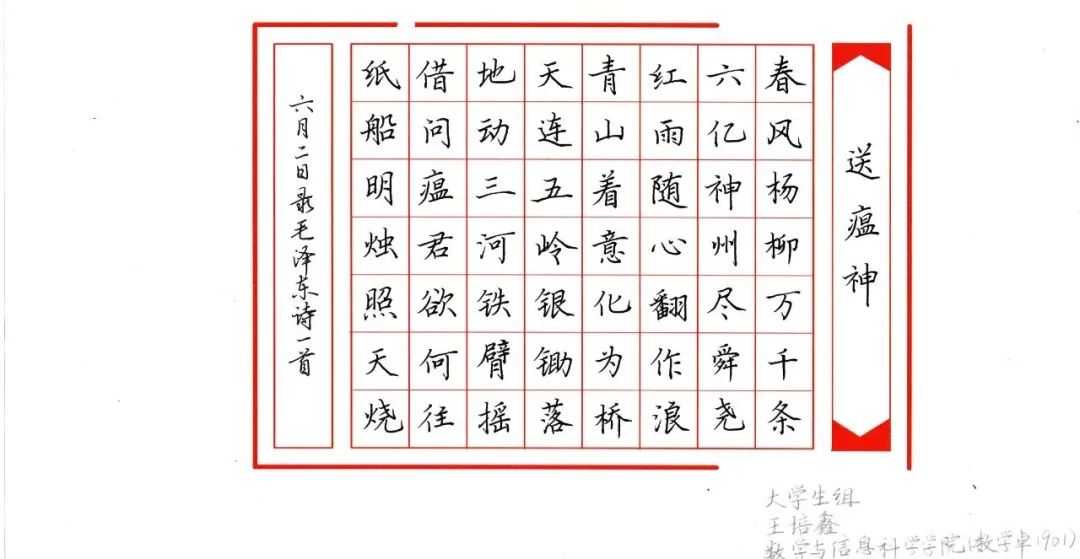 送瘟神
春风杨柳万千条
六亿神州尽舜尧
红雨随心翻作浪
青山着意化为桥
天连五岭银锄落
地动三河铁臂摇
借问瘟君欲何往
纸船明烛照天烧
六月二日录毛泽东诗一首
大学生组
王培鑫
数学与信息科学学院(数学卓1901)